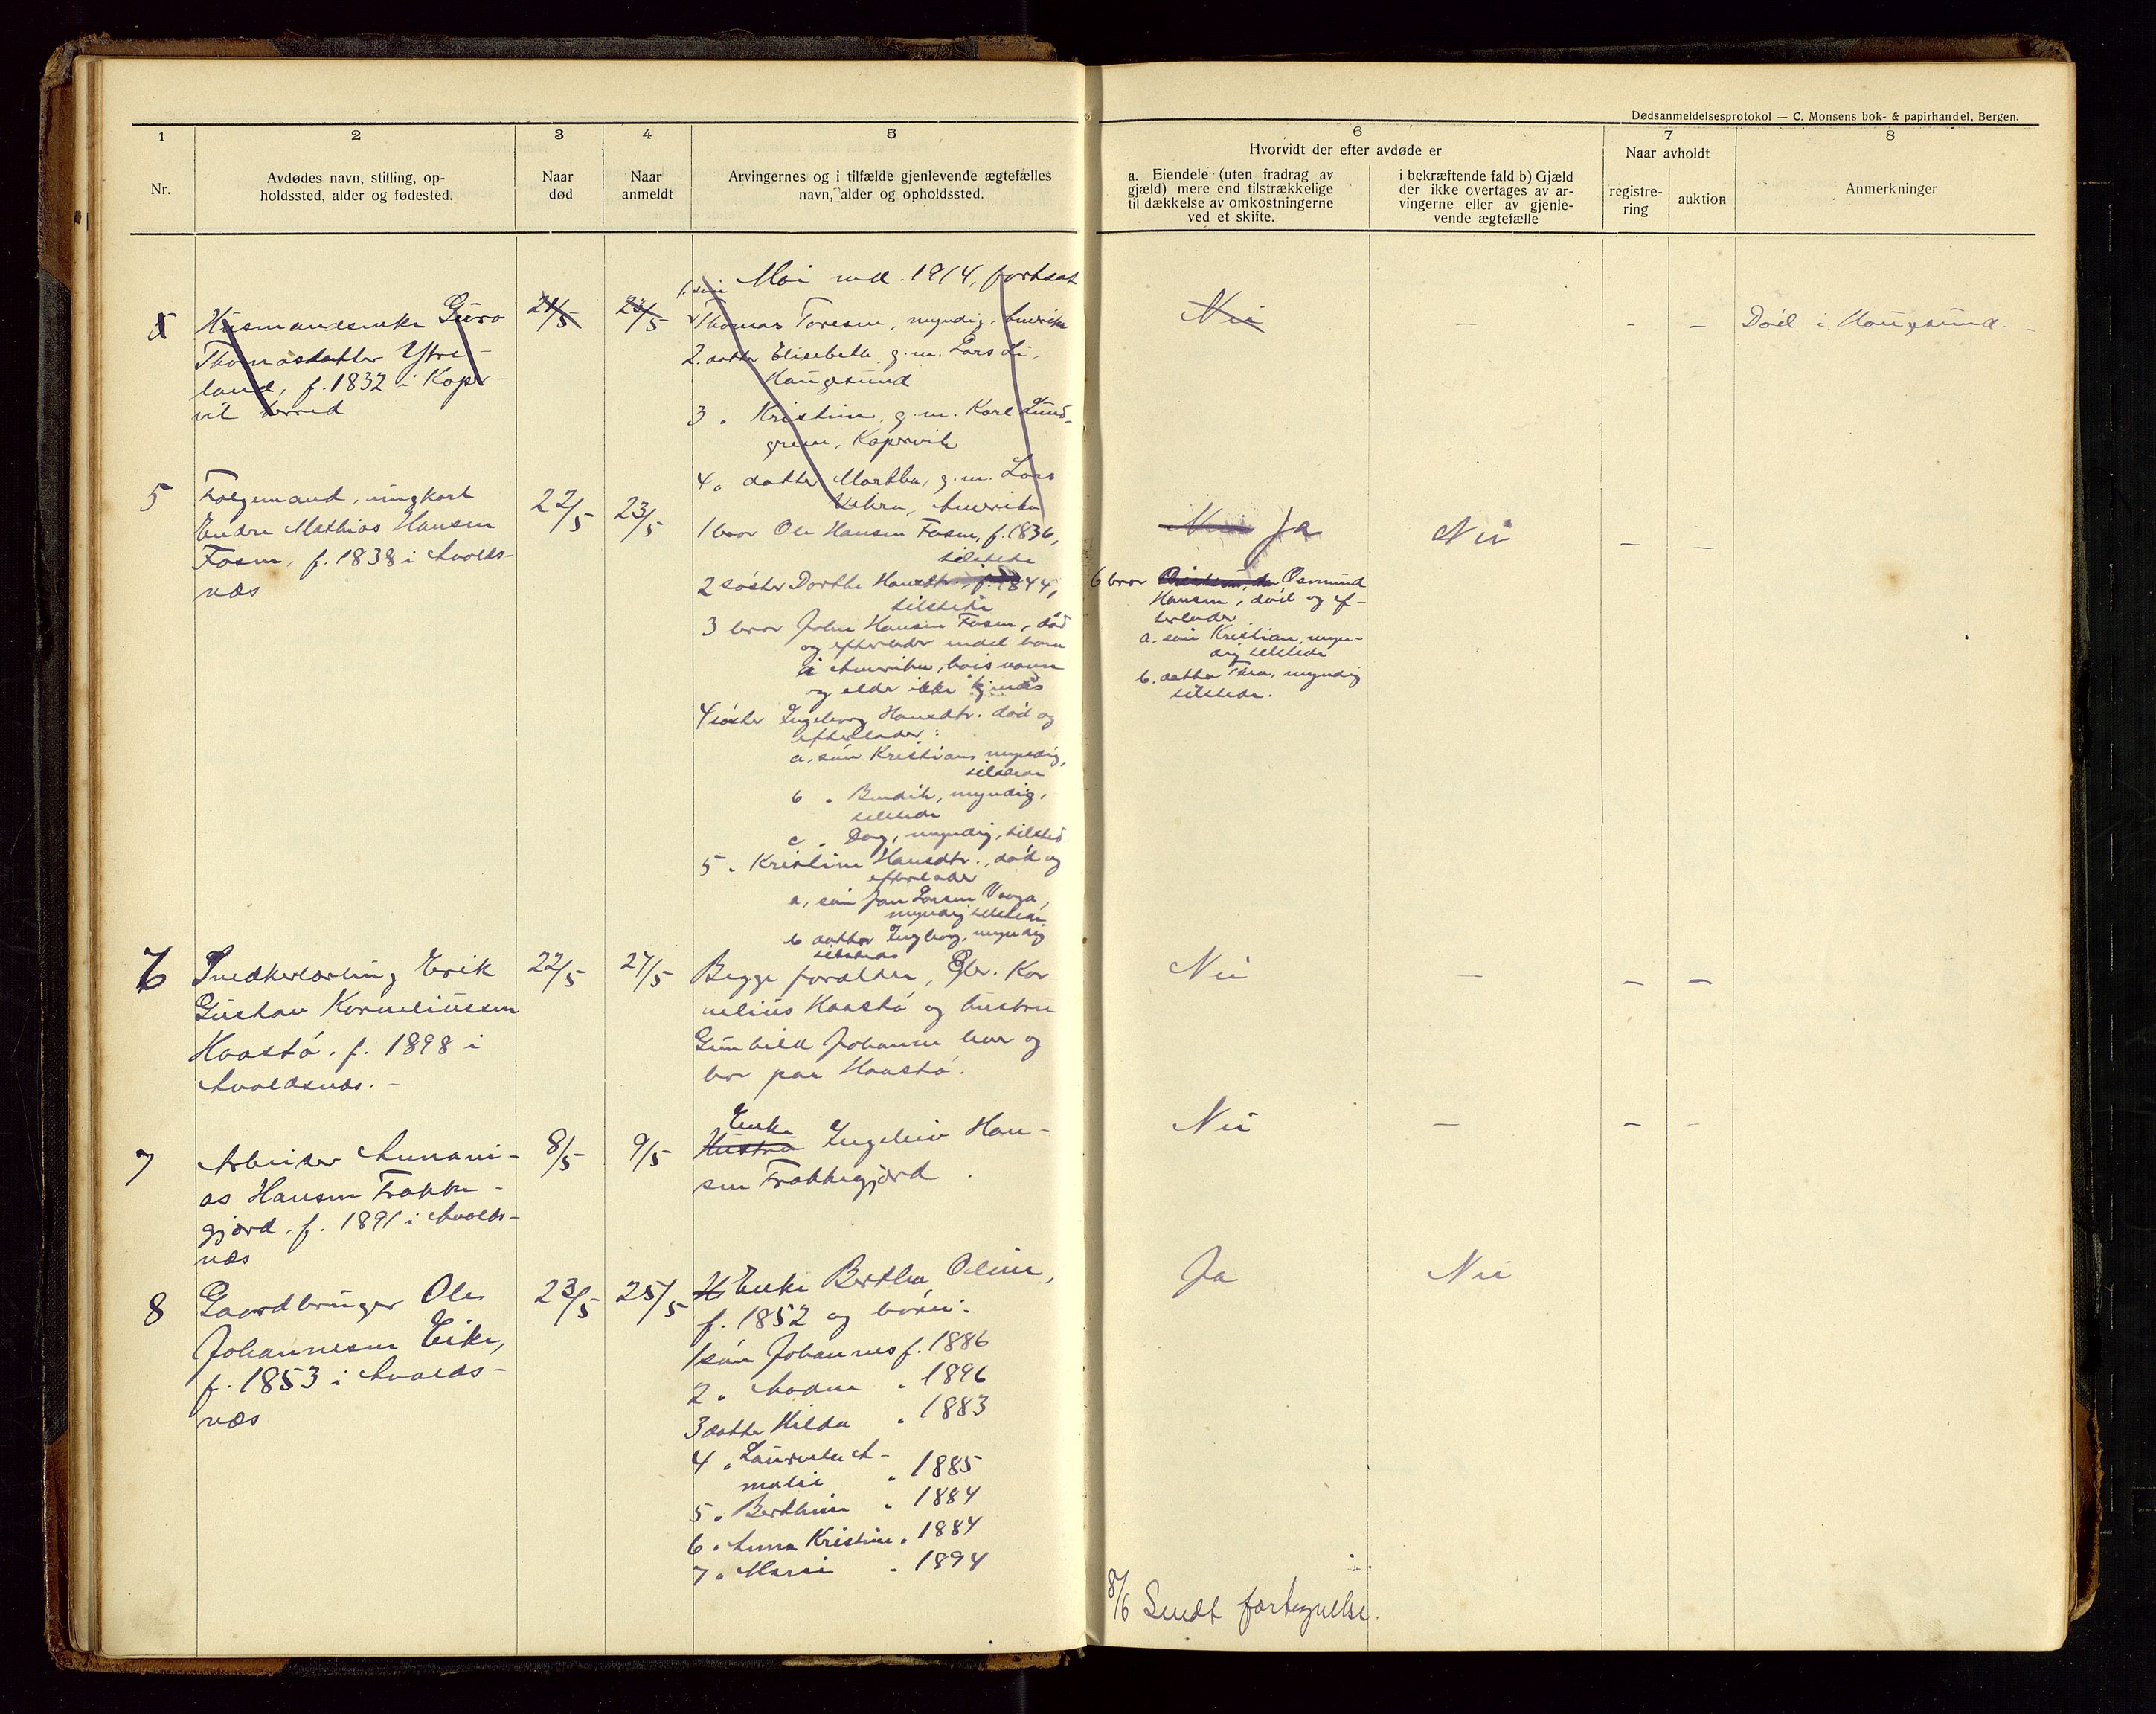 Dødsanmeldelsesprotokol — C. Monsens bok- & papirhandel, Bergen.
1
2
3
4
5
6
7
8
Nr.
Avdødes navn, stilling, op-
holdssted, alder og fødested.
Naar
død
Naar
anmeldt
Arvingernes og i tilfælde gjenlevende ægtefælles
navn, alder og opholdssted.
Hvorvidt der efter avdøde er
a. Eiendele (uten fradrag av
gjæld) mere end tilstrækkelige
til dækkelse av omkostningerne
ved et skifte.
i bekræftende fald b) Gjæld
der ikke overtages av ar-
vingerne eller av gjenle-
vende ægtefælle
Naar avholdt
registre-
ring
auktion
Anmerkninger
Mai md. 1914, fortsat
5
Husmandsenke Guro
Thomasdatter Ytre-
land, f. 1832 i Koper-
vik herred
21/5
23/5
1. søn
Thomas Toresen, myndig, Amerika
2. datter Elisebeth, g.m. Lars Li,
Haugesund
3 " Kristine, g.m. Karl Lund-
green, Kopervik
4 " datter Martha, g.m. Lars
Amerika
Nei
—
-
-
Död i Haugesund. -
5
Følgemand, ungkarl
Endre Mathias Hansen
Fosen, f. 1838 i Avalds-
næs
22/5
23/5
1 bror Ole Hansen Fosen, f. 1836,
tilstede
2 søster Dorthe Hansdtr., f. 1844,
tilstede
3 bror John Hansen Fosen, død
og efterlader endel barn
i Amerika, hvis navn
og alder ikke kjendes
4 søster Ingeborg Hansdtr. død og
efterlader:
a. søn Kristian myndig,
tilstede
b " Bendik, myndig,
tilstede
c " Dag, myndig, tilsted
5 " Kristine Hansdtr., død og
efterlader
a, søn Jan Larsen Vaaga,
myndig tilstede
b datter Ingborg, myndig
tilstede
Nei Ja
Nei
-
-
6 bror Osmund
Hansen, död og ef-
terlader
a. søn Kristian, myn-
dig tilstede
b. datter Thea, myndig
tilstede.
6
Snedkerlærling Erik
Gustav Korneliussen
Haastø. f. 1898 i
Avaldsnæs. -
22/5
27/5
Begge forældre, Gbr. Kor
nelius Haastø og hustru
Gunhild Johanne lever og
bor paa Haastø.
Nei
—
-
-
7
Arbeider Annani-
as Hansen Frakke-
gjerd, f. 1891 i Avalds-
næs
8/5
9/5
Enke
Hustru Ingeleiv Han-
sen Frakkegjerd.
Nei
—
-
-
8
Gaardbruger Ole
Johannesen Eike,
f. 1853 i Avalds-
næs
23/5
25/5
H Enke Bertha Oline,
f. 1852 og børn:
1 søn Johannes f. 1886
2 " Aadne " 1896
3 datter Hilda " 1883
4 " Laurentse A-
malie " 1885
5 " Berthine " 1884
6 " Anna Kristine " 1884
7 " Marie " 1894
Ja
Nei
8/6 Sendt fortegnelse.